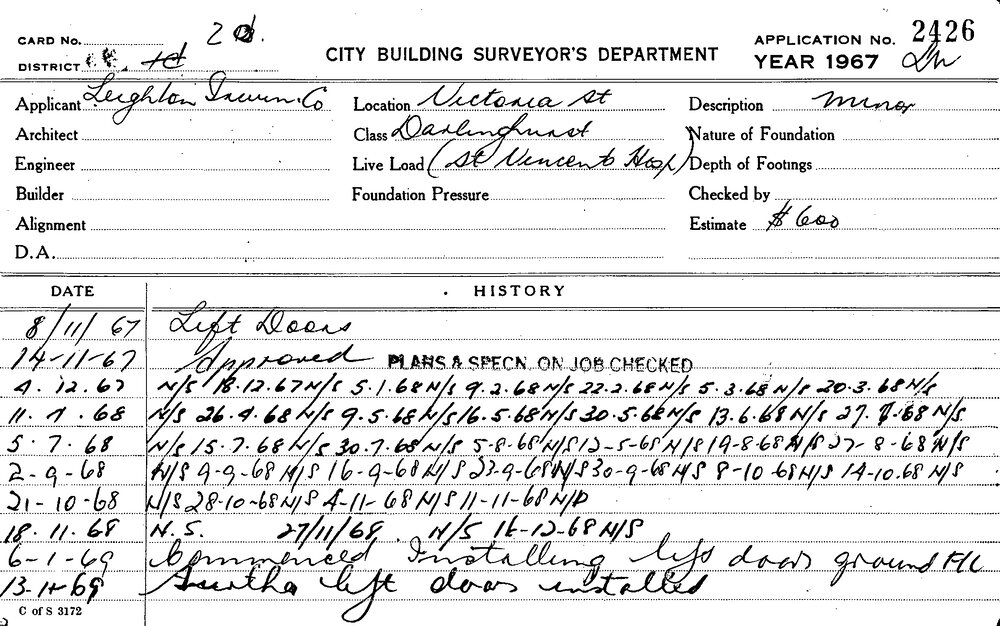 CARD No. 2d.
CITY BUILDING SURVEYOR'S DEPARTMENT
APPLICATION No. 2426
DISTRICT
YEAR 1967
Applicant Leighton Irwin. Co Location Victoria St Description Minor
Architect Class Darlinghurst Nature of Foundation
Engineer Live Load (St Vincents Hosp) Depth of Footings
Builder Foundation Pressure Checked by
Alignment Estimate $600
D.A.
DATE HISTORY
8/11/67 Lift Doors
14-11-67 Approved PLANS & SPECN. ON JOB CHECKED
4.12.67 N/S 18.12.67 N/S 5.1.68 N/S 9.2.68 N/S 22.2.68 N/S 5.3.68 N/S 20.3.68 N/S
11.4.68 N/S 26.4.68 N/S 9.5.68 N/S 16.5.68 N/S 30.5.68 N/S 13.6.68 N/S 27.6.68 N/S
5.7.68 N/S 15.7.68 N/S 30.7.68 N/S 5-8-68 N/S 12-5-68 N/S 19-8-68 N/S 27-8-68 N/S
2-9-68 N/S 9-9-68 N/S 16-9-68 N/S 23-9-68 N/S 30-9-68 N/S 8-10-68 N/S 14-10.68 N/S
21-10-68 N/S 28-10-68 N/S 4-11-68 N/S 11-11-68 N/S
18.11.68 N.S. 27/11/68. N/S 16-12-68 N/S
6-1-69 Commenced Installing lift doors ground Flr
13-1-69 Further lift doors installed
C of S 3172